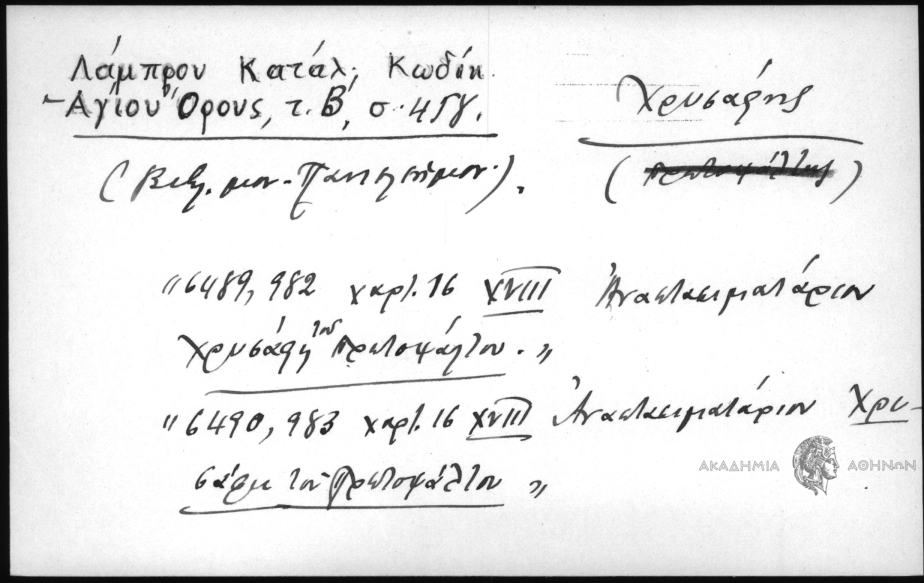 Λάμπρου Κατάλ, Κωδίκ.
Ἁγίου Ὄρους, τ. Β', σ. 458.
Χρυσάφης
(Βιβλ. μον. Παντελεήμον.).
(πρωτοψάλτης)
"6489, 982 χαρτ. 16 XVIII Ἀναστασιματάριον
Χρυσάφη τοῦ πρωτοψάλτου."
"6490, 983 χαρτ. 16 XVIII Ἀναστασιματάριον Χρυ-
σάφη τοῦ Πρωτοψάλτου"
ΑΚΑΔΗΜΙΑ ΑΘΗΝΩΝ